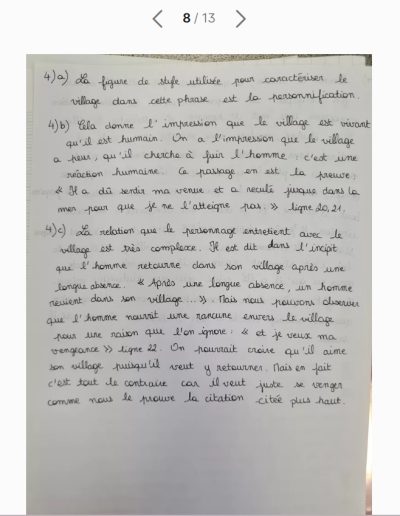 8 / 13
4)a) La figure de style utilisée pour caractériser le
village dans cette phrase est la personnification.
4)b) Cela donne l'impression que le village est vivant
qu'il est humain. On a l'impression que le village
a peur, qu'il cherche à fuir l'homme : c'est une
réaction humaine. Ce passage en est la preuve :
« Il a dû sentir ma venue et a reculé jusque dans la
mer pour que je ne l'atteigne pas. » ligne 20,21.
4)c) La relation que le personnage entretient avec le
village est très complexe. Il est dit dans l'incipit
que l'homme retourne dans son village après une
longue absence. « Après une longue absence, un homme
revient dans son village ... » : Mais nous pouvons observer
que l'homme nourrit une rancune envers le village
pour une raison que l'on ignore : « et je veux ma
vengeance » ligne 22. On pourrait croire qu'il aime
son village puisqu'il veut y retourner. Mais en fait
c'est tout le contraire car il veut juste se venger
comme nous le prouve la citation citée plus haut.